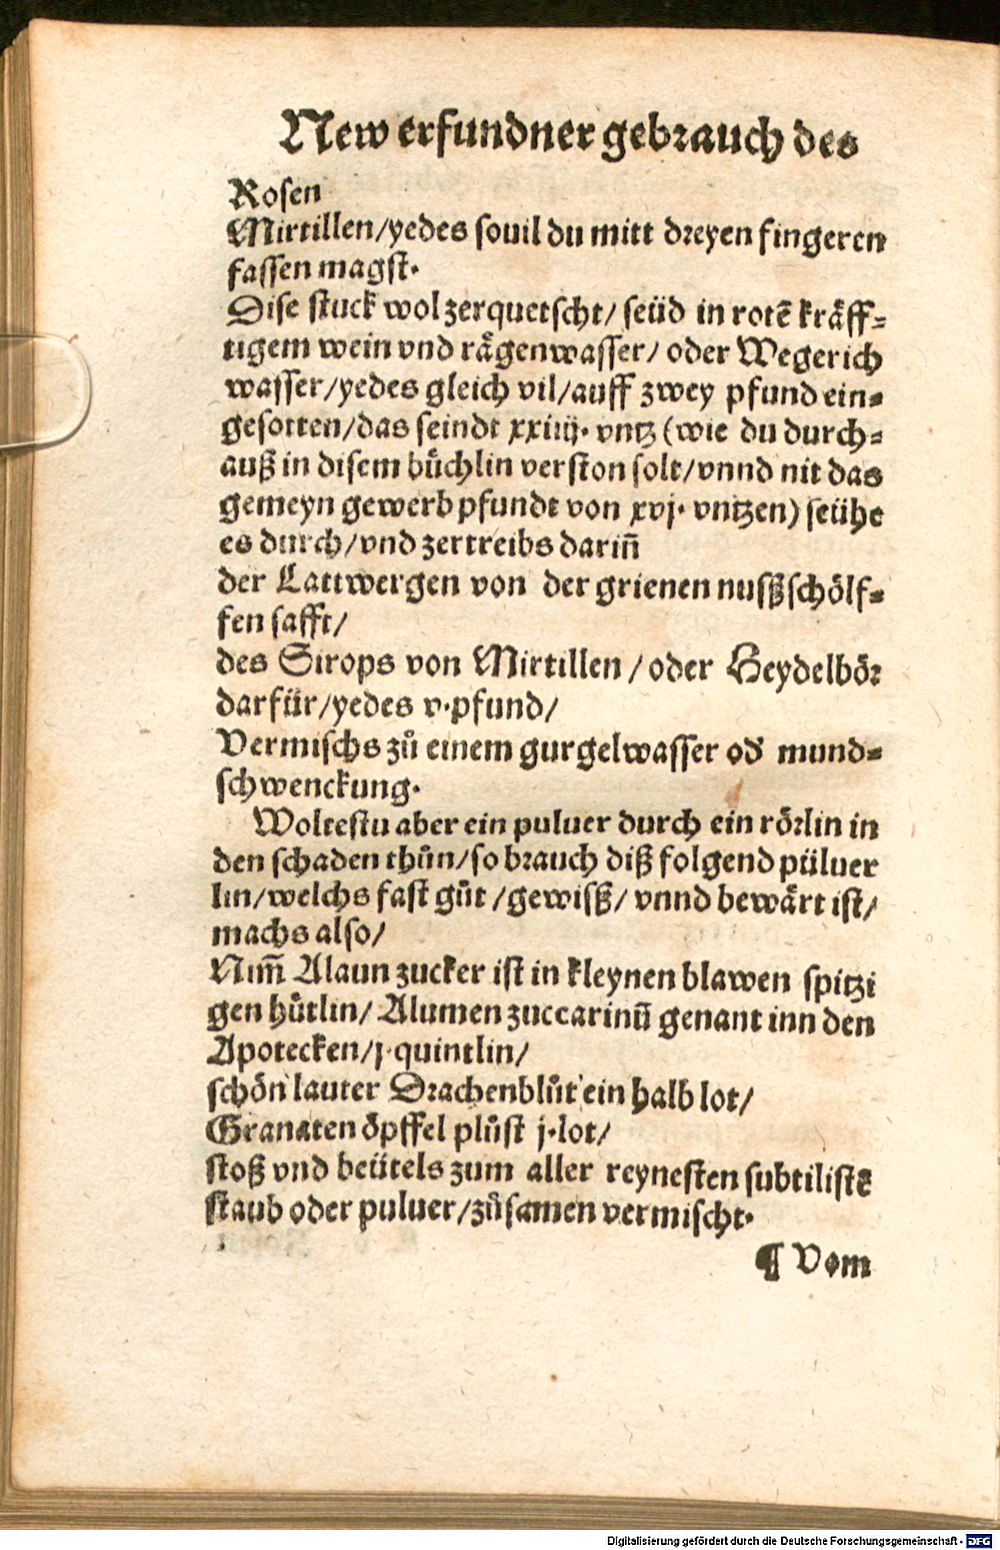 New erfundner gebrauch des
Rosen
Mirtillen/yedes souil du mitt dreyen fingeren
fassen magst.
Dise stuck wol zerquetscht/ seüd in rotē kräff⸗
tigem wein vnd rägenwasser/ oder Wegerich
wasser/yedes gleich vil/auff zwey pfund ein⸗
gesotten/das seindt xxiiij. vntz (wie du durch⸗
auß in disem bůchlin verston solt/vnnd nit das
gemeyn gewerb pfundt von xvj. vntzen) seühe
es durch/vnd zertreibs dariñ
der Lattwergen von der grienen nusßschölf⸗
fen safft/
des Sirops von Mirtillen / oder Heydelbör
darfür/yedes v.pfund/
Vermischs zů einem gurgelwasser od̕ mund⸗
schwenckung.
Woltestu aber ein puluer durch ein rörlin in
den schaden thůn/so brauch diß folgend püluer
lin/welchs fast gůt /gewisß/ vnnd bewärt ist/
machs also/
Nim̄ Alaun zucker ist in kleynen blawen spitzi
gen hůtlin/ Alumen zuccarinū genant inn den
Apotecken/j.quintlin/
schön lauter Drachenblůt ein halb lot/
Granaten öpffel plůst j.lot/
stoß vnd beütels zum aller reynesten subtilistē
staub oder puluer/zůsamen vermischt.
¶ Vom
Digitalisierung gefördert durch die Deutsche Forschungsgemeinschaft - DFG